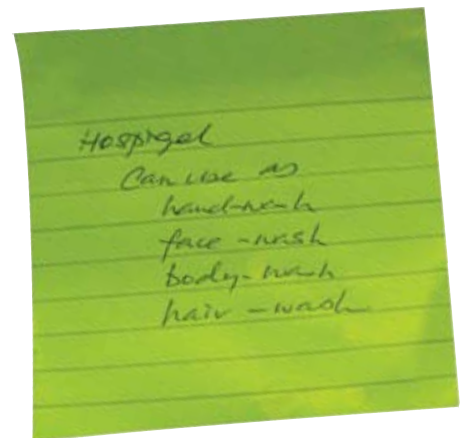 Hospigel
Can use as
hand-wash
face-wash
body-wash
hair-wash